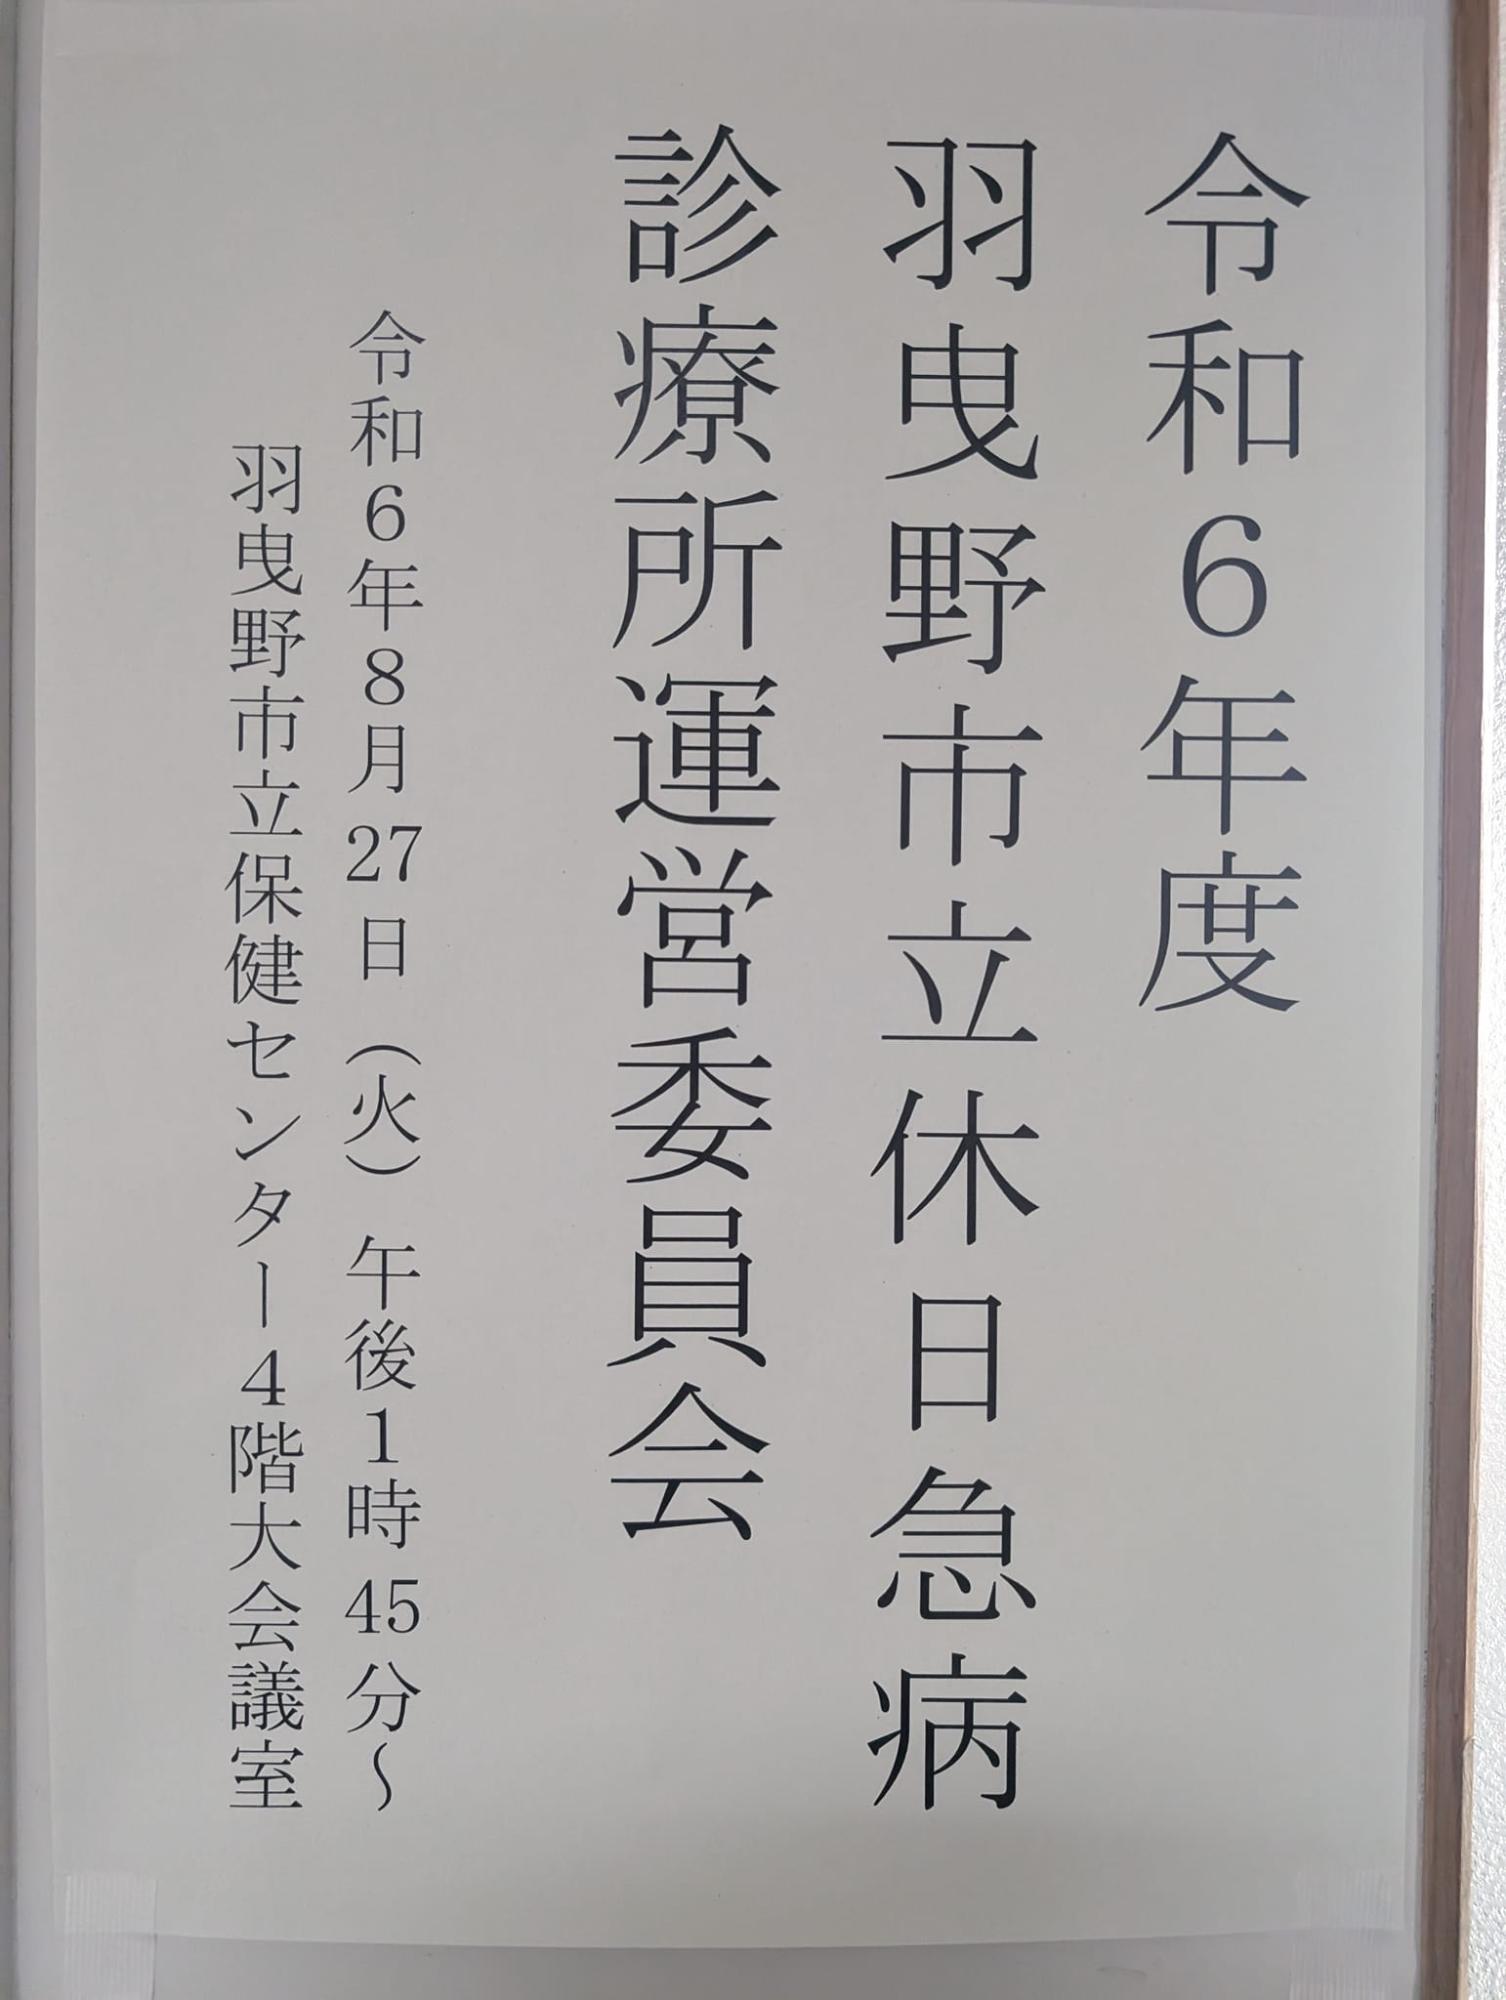 令和６年度
羽曳野市立休日急病
診療所運営委員会
令和６年８月27日（火）午後１時45分～
羽曳野市立保健センター４階大会議室